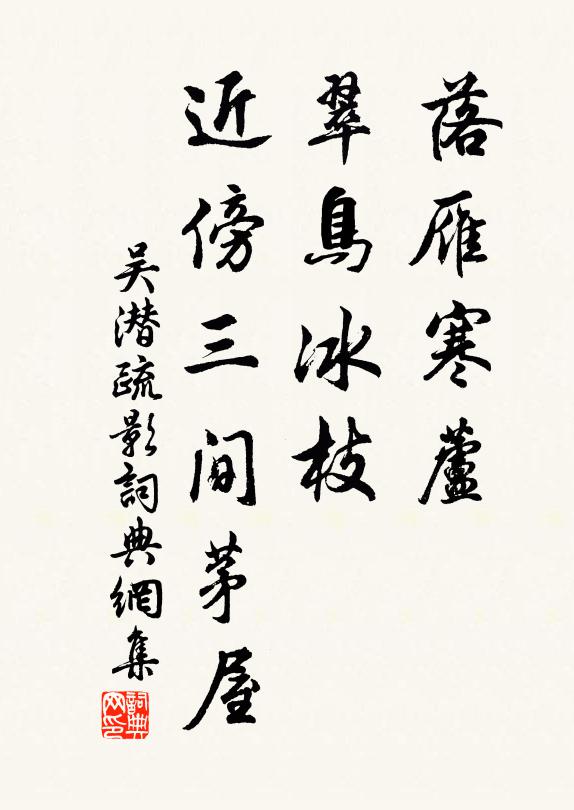 落雁寒蘆
翠鳥冰枝
近傍三間茅屋
吳潛疏影詞典網集
詞典
网印